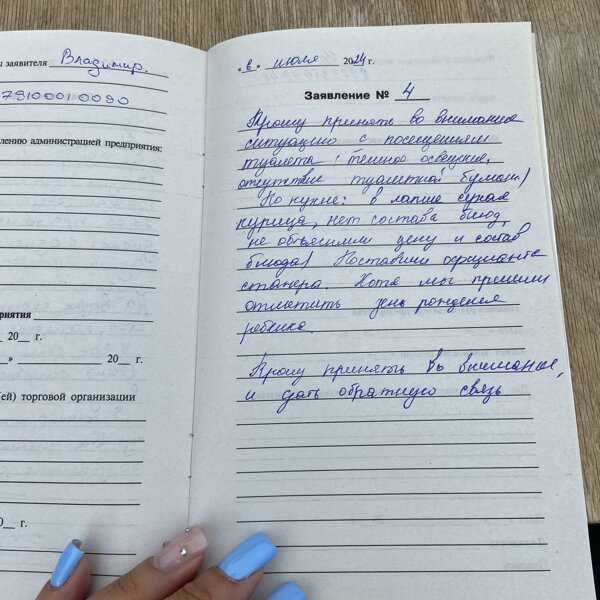 ы заявителя Владимир.
79100010090
лению администрацией предприятия:
приятия
20 г.
» 20 г.
(ей) торговой организации
0 г.
« 6 » июля 2024 г.
Заявление № 4
Прошу принять во внимание
ситуацию с посещением
туалета (темное освещение,
отсутствие туалетной бумаги)
По кухне: в лапше сухая
курица, нет состава блюд,
не объяснили цену и состав
блюда) Поставили официанта
стажера. Хотя мы пришли
отметить день рождения
ребенка.
Прошу принять во внимание,
и дать обратную связь